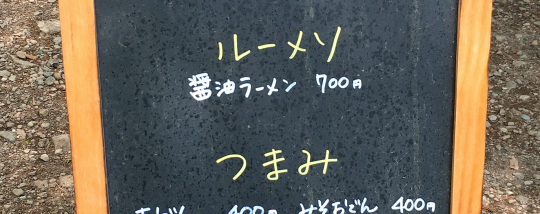 ルーメソ
醤油ラーメン 700円
つまみ
400円 みそおでん 400円